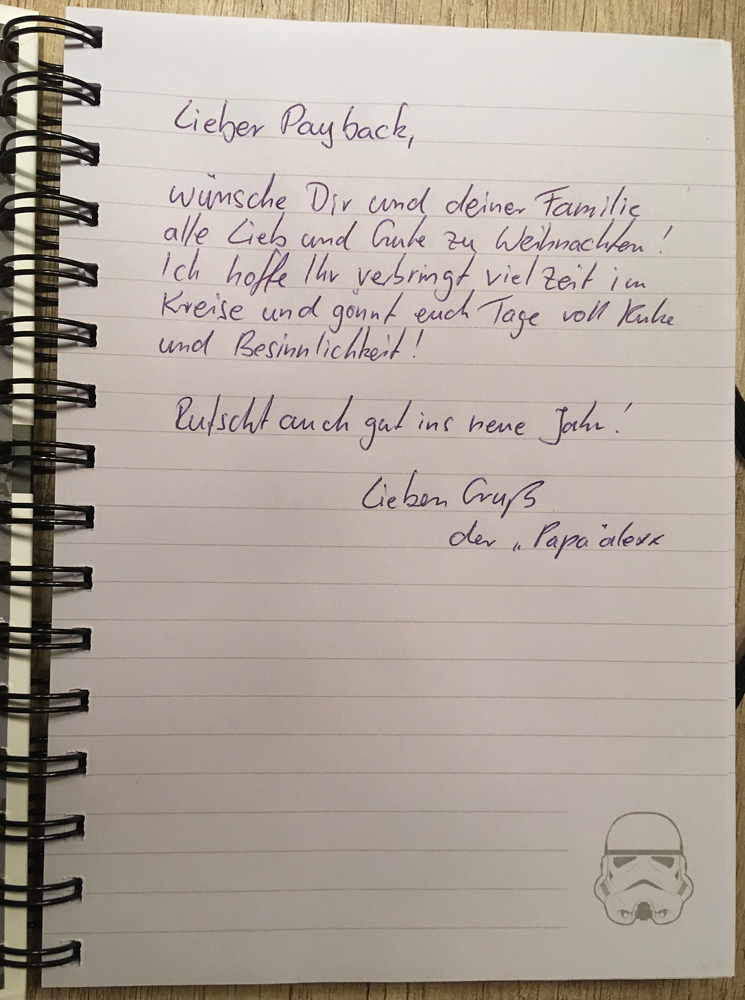 Lieber Payback,
wünsche Dir und deiner Familie
alle Lieb und Gute zu Weihnachten!
Ich hoffe Ihr verbringt viel Zeit im
Kreise und gönnt euch Tage voll Ruhe
und Besinnlichkeit!
Rutscht auch gut ins neue Jahr!
Lieben Gruß
der „Papa“alexx